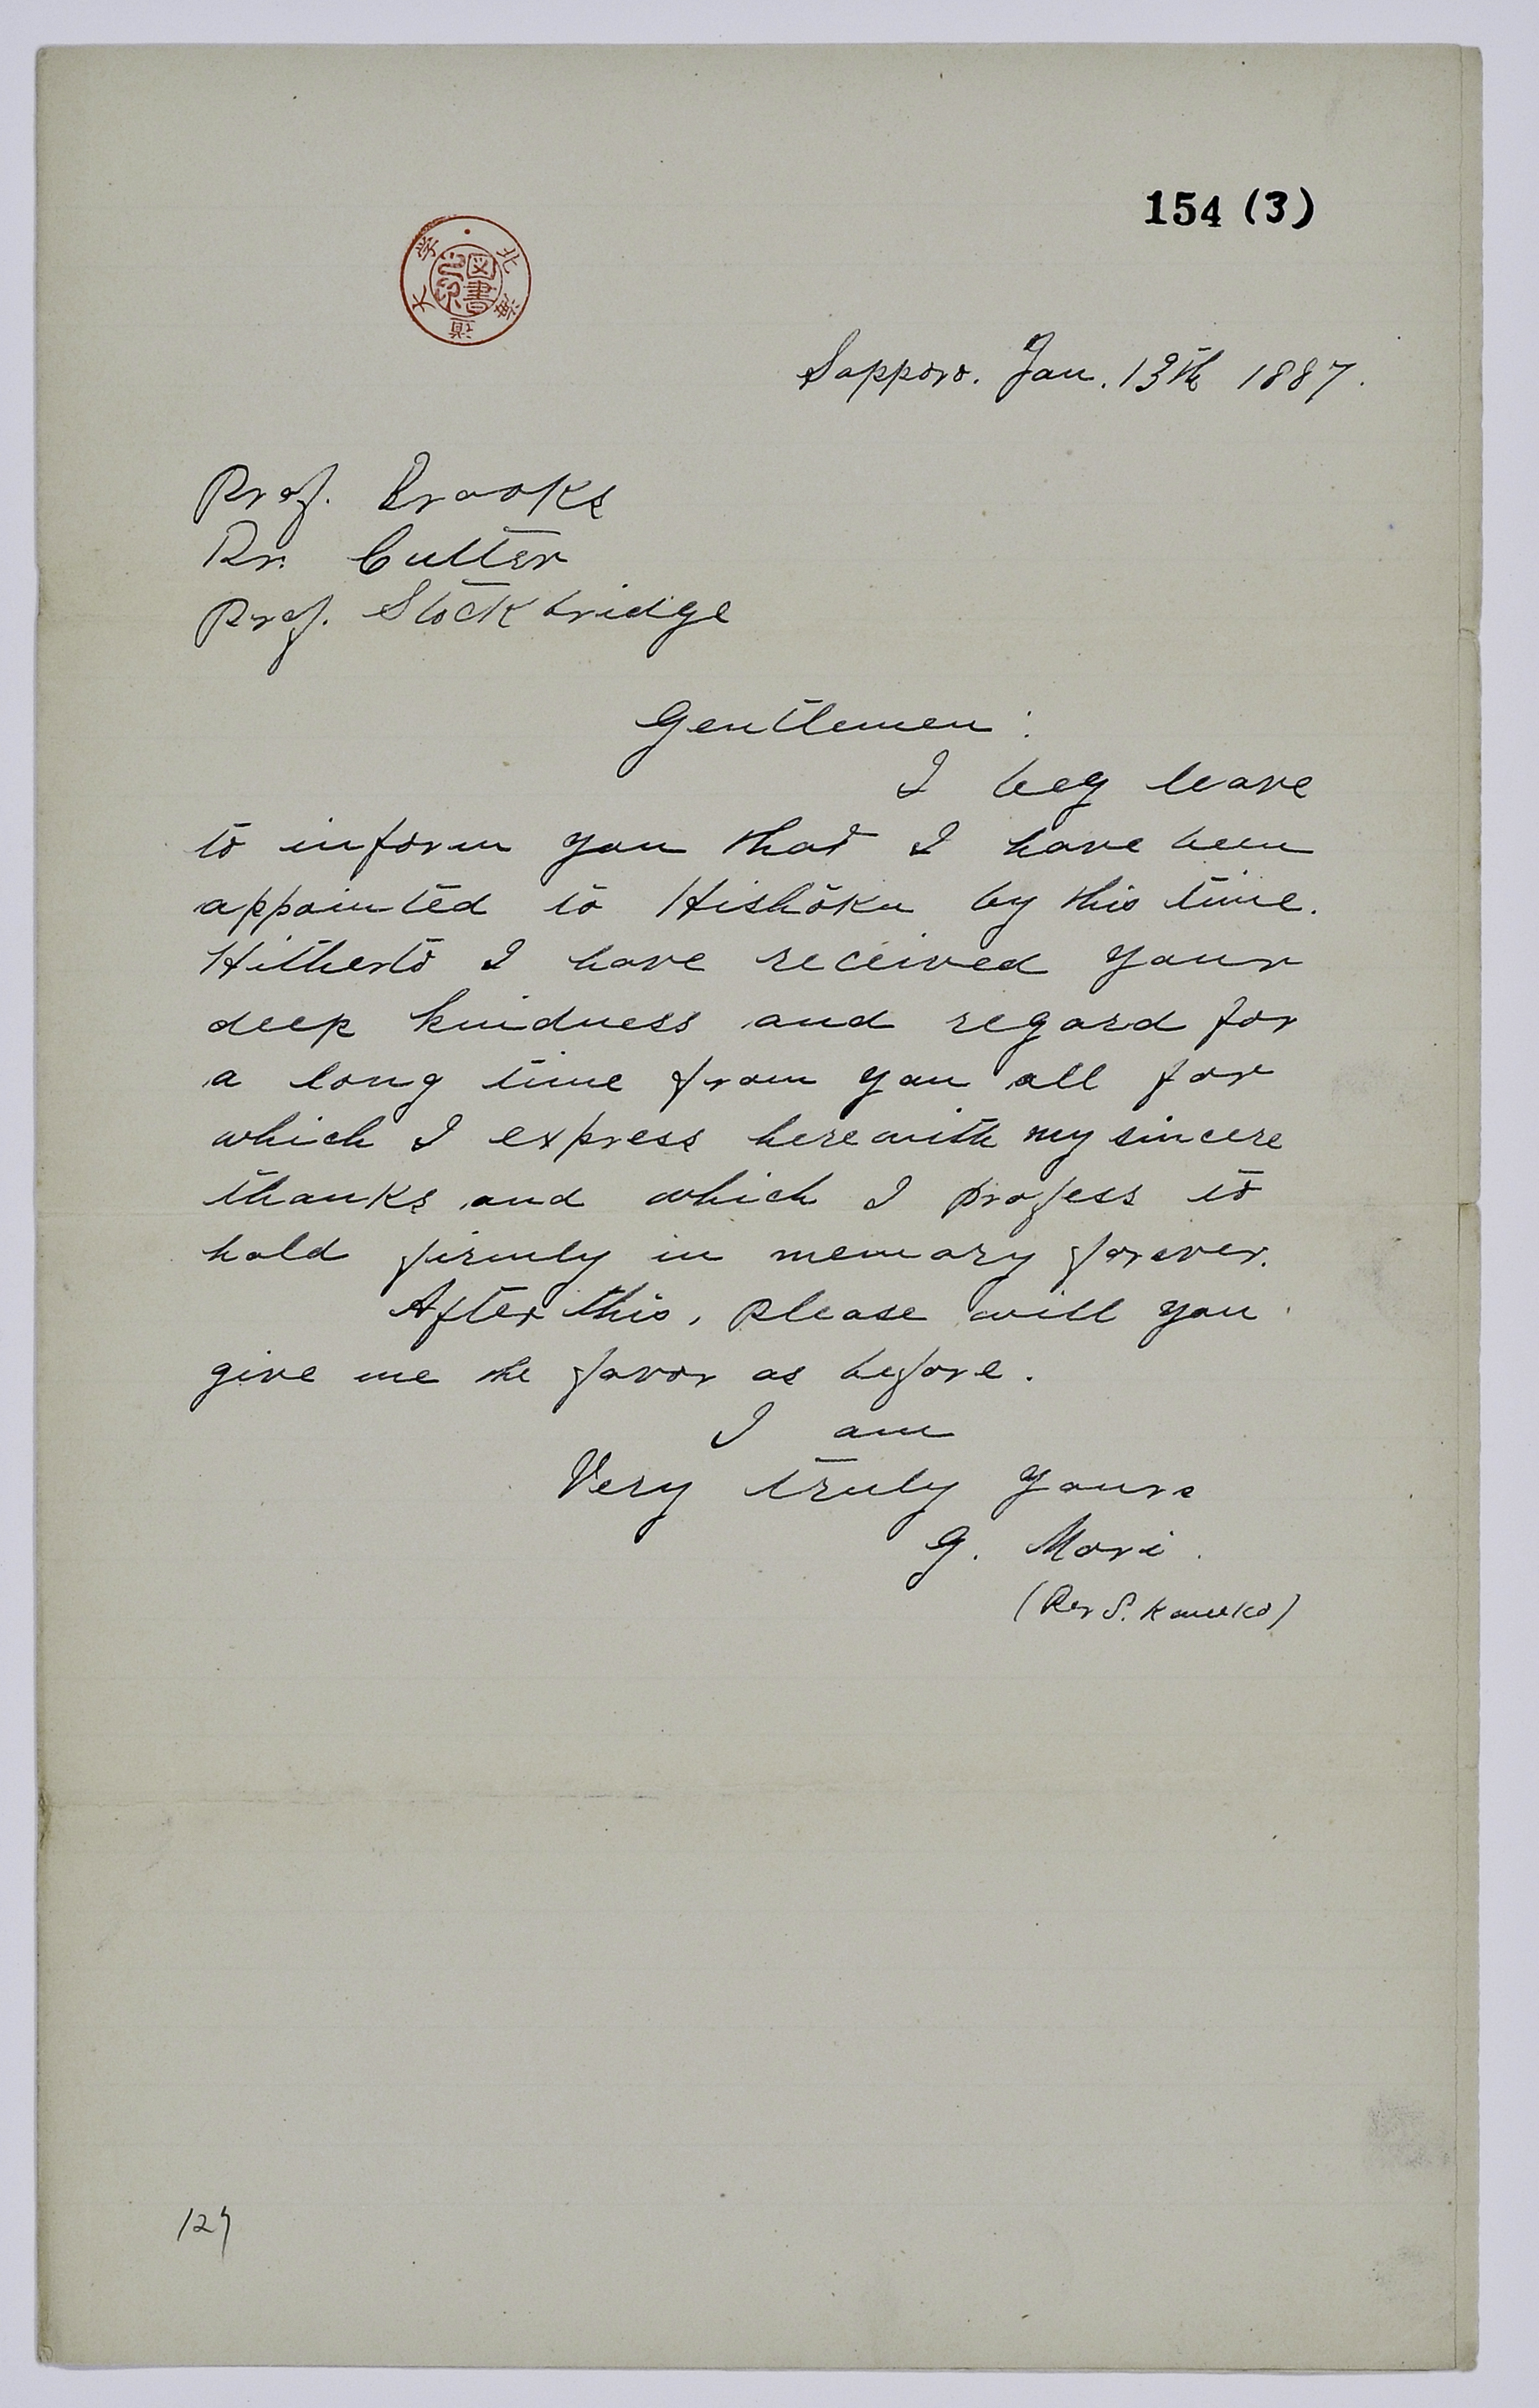 154 (3)
北海道大学
図書之印
Sapporo. Jan. 13th 1887.
Prof. Brooks
Dr. Cutter
Prof. Stockbridge
Gentlemen:
I beg leave
to inform you that I have been
appointed to Hishoku by this time.
Hitherto I have received your
deep kindness and regard for
a long time from you all for
which I express herewith my sincere
thanks and which I profess to
hold firmly in memory forever.
After this, please will you
give me the favor as before.
I am
Very truly yours
G. Mori.
(Per S. Kaneko)
127